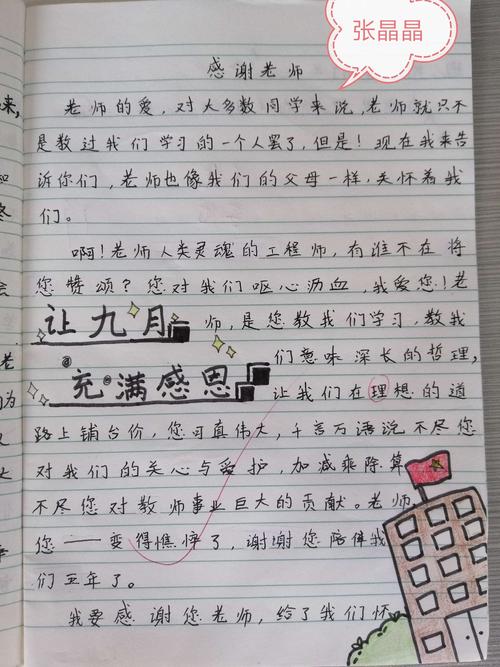 张晶晶
感谢老师
老师的爱，对大多数同学来说，老师就只不
是教过我们学习的一个人罢了，但是！现在我来告
诉你们，老师也像我们的父母一样，关怀着我
们。
啊！老师人类灵魂的工程师，有谁不在将
您赞颂？您对我们呕心沥血，我爱您！老
师，是您教我们学习，教我
让九月
们意味深长的哲理，
充满感恩
让我们在理想的道
路上铺台价，您可真伟大，千言万语说不尽您
对我们的关心与爱护，加减乘除算
不尽您对教师事业巨大的贡献。老师
您——变得憔悴了，谢谢您陪伴我
们五年了。
我要感谢您老师，给了我们怀
来，
会
老
为